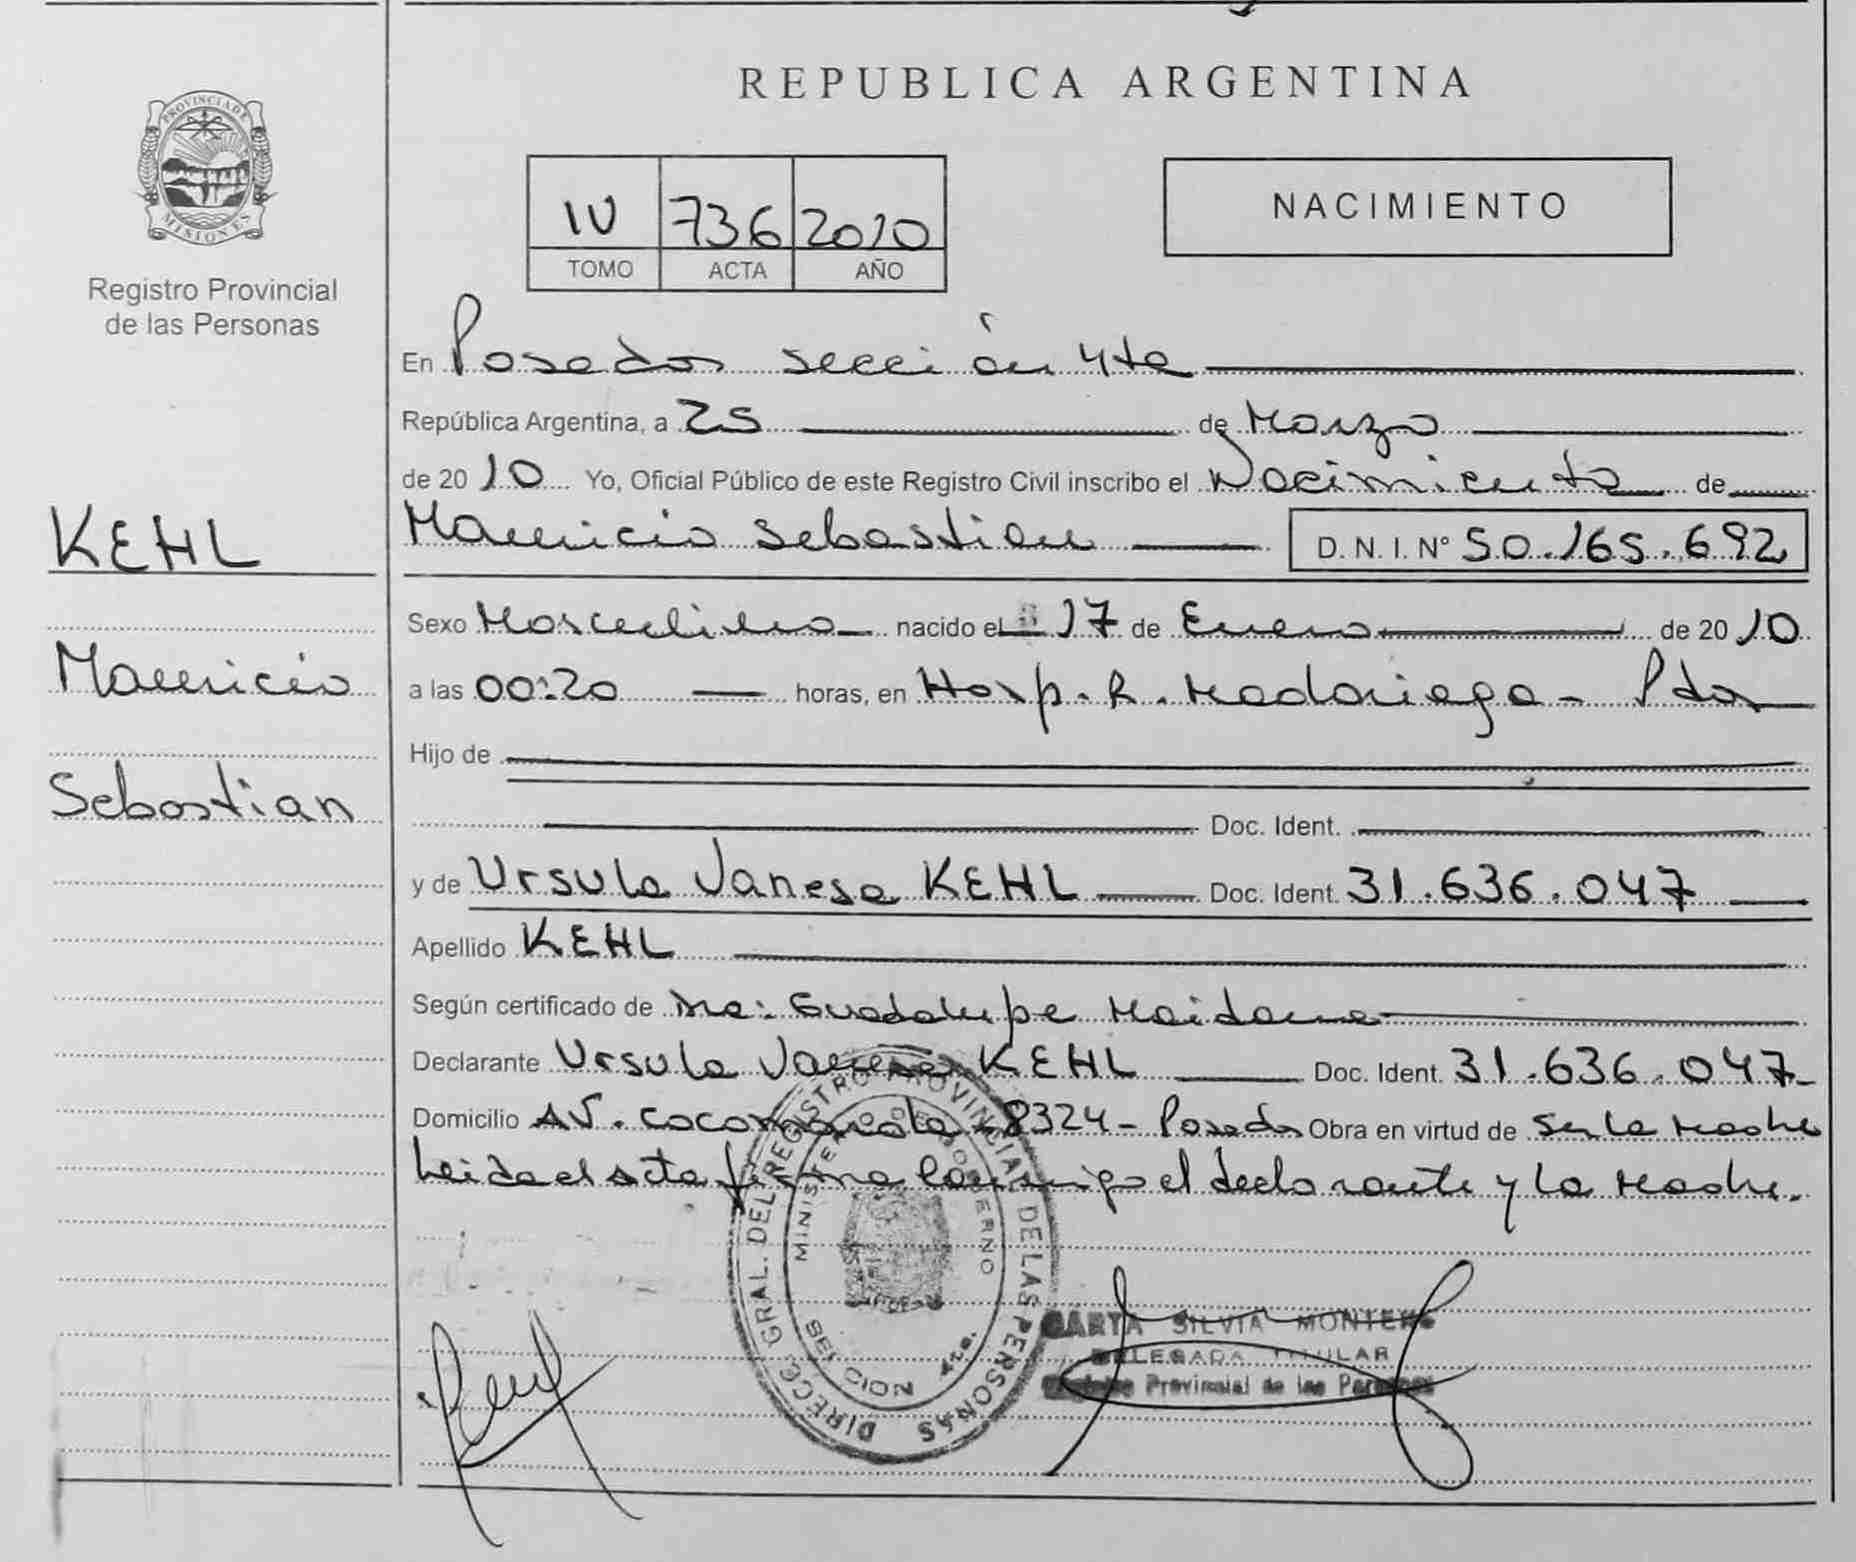 REPUBLICA ARGENTINA
PROVINCIA DE
MISIONES
Registro Provincial
de las Personas
IV 736 2010
TOMO ACTA AÑO
NACIMIENTO
En Posadas sección 4ta
República Argentina, a 25 de Marzo
de 2010 Yo, Oficial Público de este Registro Civil inscribo el Nacimiento de
Mauricio Sebastian D.N.I. Nº 50.165.692
KEHL
Mauricio
Sebastian
Sexo Masculino nacido el 17 de Enero de 2010
a las 00:20 horas, en Hosp. R. Madariaga - Pdas
Hijo de
Doc. Ident.
y de Ursula Vanesa KEHL Doc. Ident. 31.636.047
Apellido KEHL
Según certificado de Dra: Guadalupe Maidana
Declarante Ursula Vanesa KEHL Doc. Ident. 31.636.047
Domicilio AV. Cocomarola 8324 - Posadas Obra en virtud de Ser la Madre
Leida el acta firma conmigo el declarante y la Madre.
DIREC. GRAL. DEL REGISTRO PROVINCIAL DE LAS PERSONAS
MINISTERIO DE GOBIERNO
SECCION 4ta.
SILVIA MONTERO
DELEGADA TITULAR
Provincial de las Personas